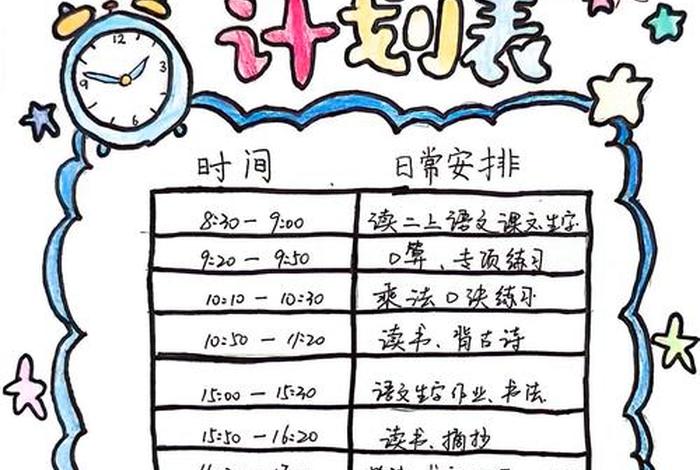 计划表
12
3
9
6
时间 日常安排
8:30 — 9:00 读二上语文课文生字
9:20 — 9:50 口算、专项练习
10:10 — 10:30 乘法口诀练习
10:50 — 11:20 读书、背古诗
15:00 — 15:30 语文生字作业、书法
15:50 — 16:20 读书、摘抄